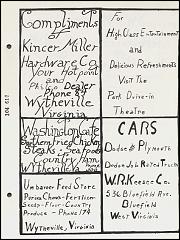 Compliments
of
Kincer Miller
Hardware Co.
Your Hotpoint
and
Philco Dealer
Phone 83
Wytheville
Virginia
Washington Cafe
Southern Fried Chicken
Steaks, Seafoods
Country Ham
Wytheville
Umbarger Feed Store
Purina Chows - Fertilizer
Seeds - Flour - Country
Produce - Phone 174
Wytheville, Virginia
For
High Class Entertainment
and
Delicious Refreshments
Visit The
Park Drive-in
Theatre
CARS
Dodge & Plymouth
Dodge Job Rated Trucks
W.R. Keesee Co.
536 Bluefield Aves.
Bluefield
West Virginia